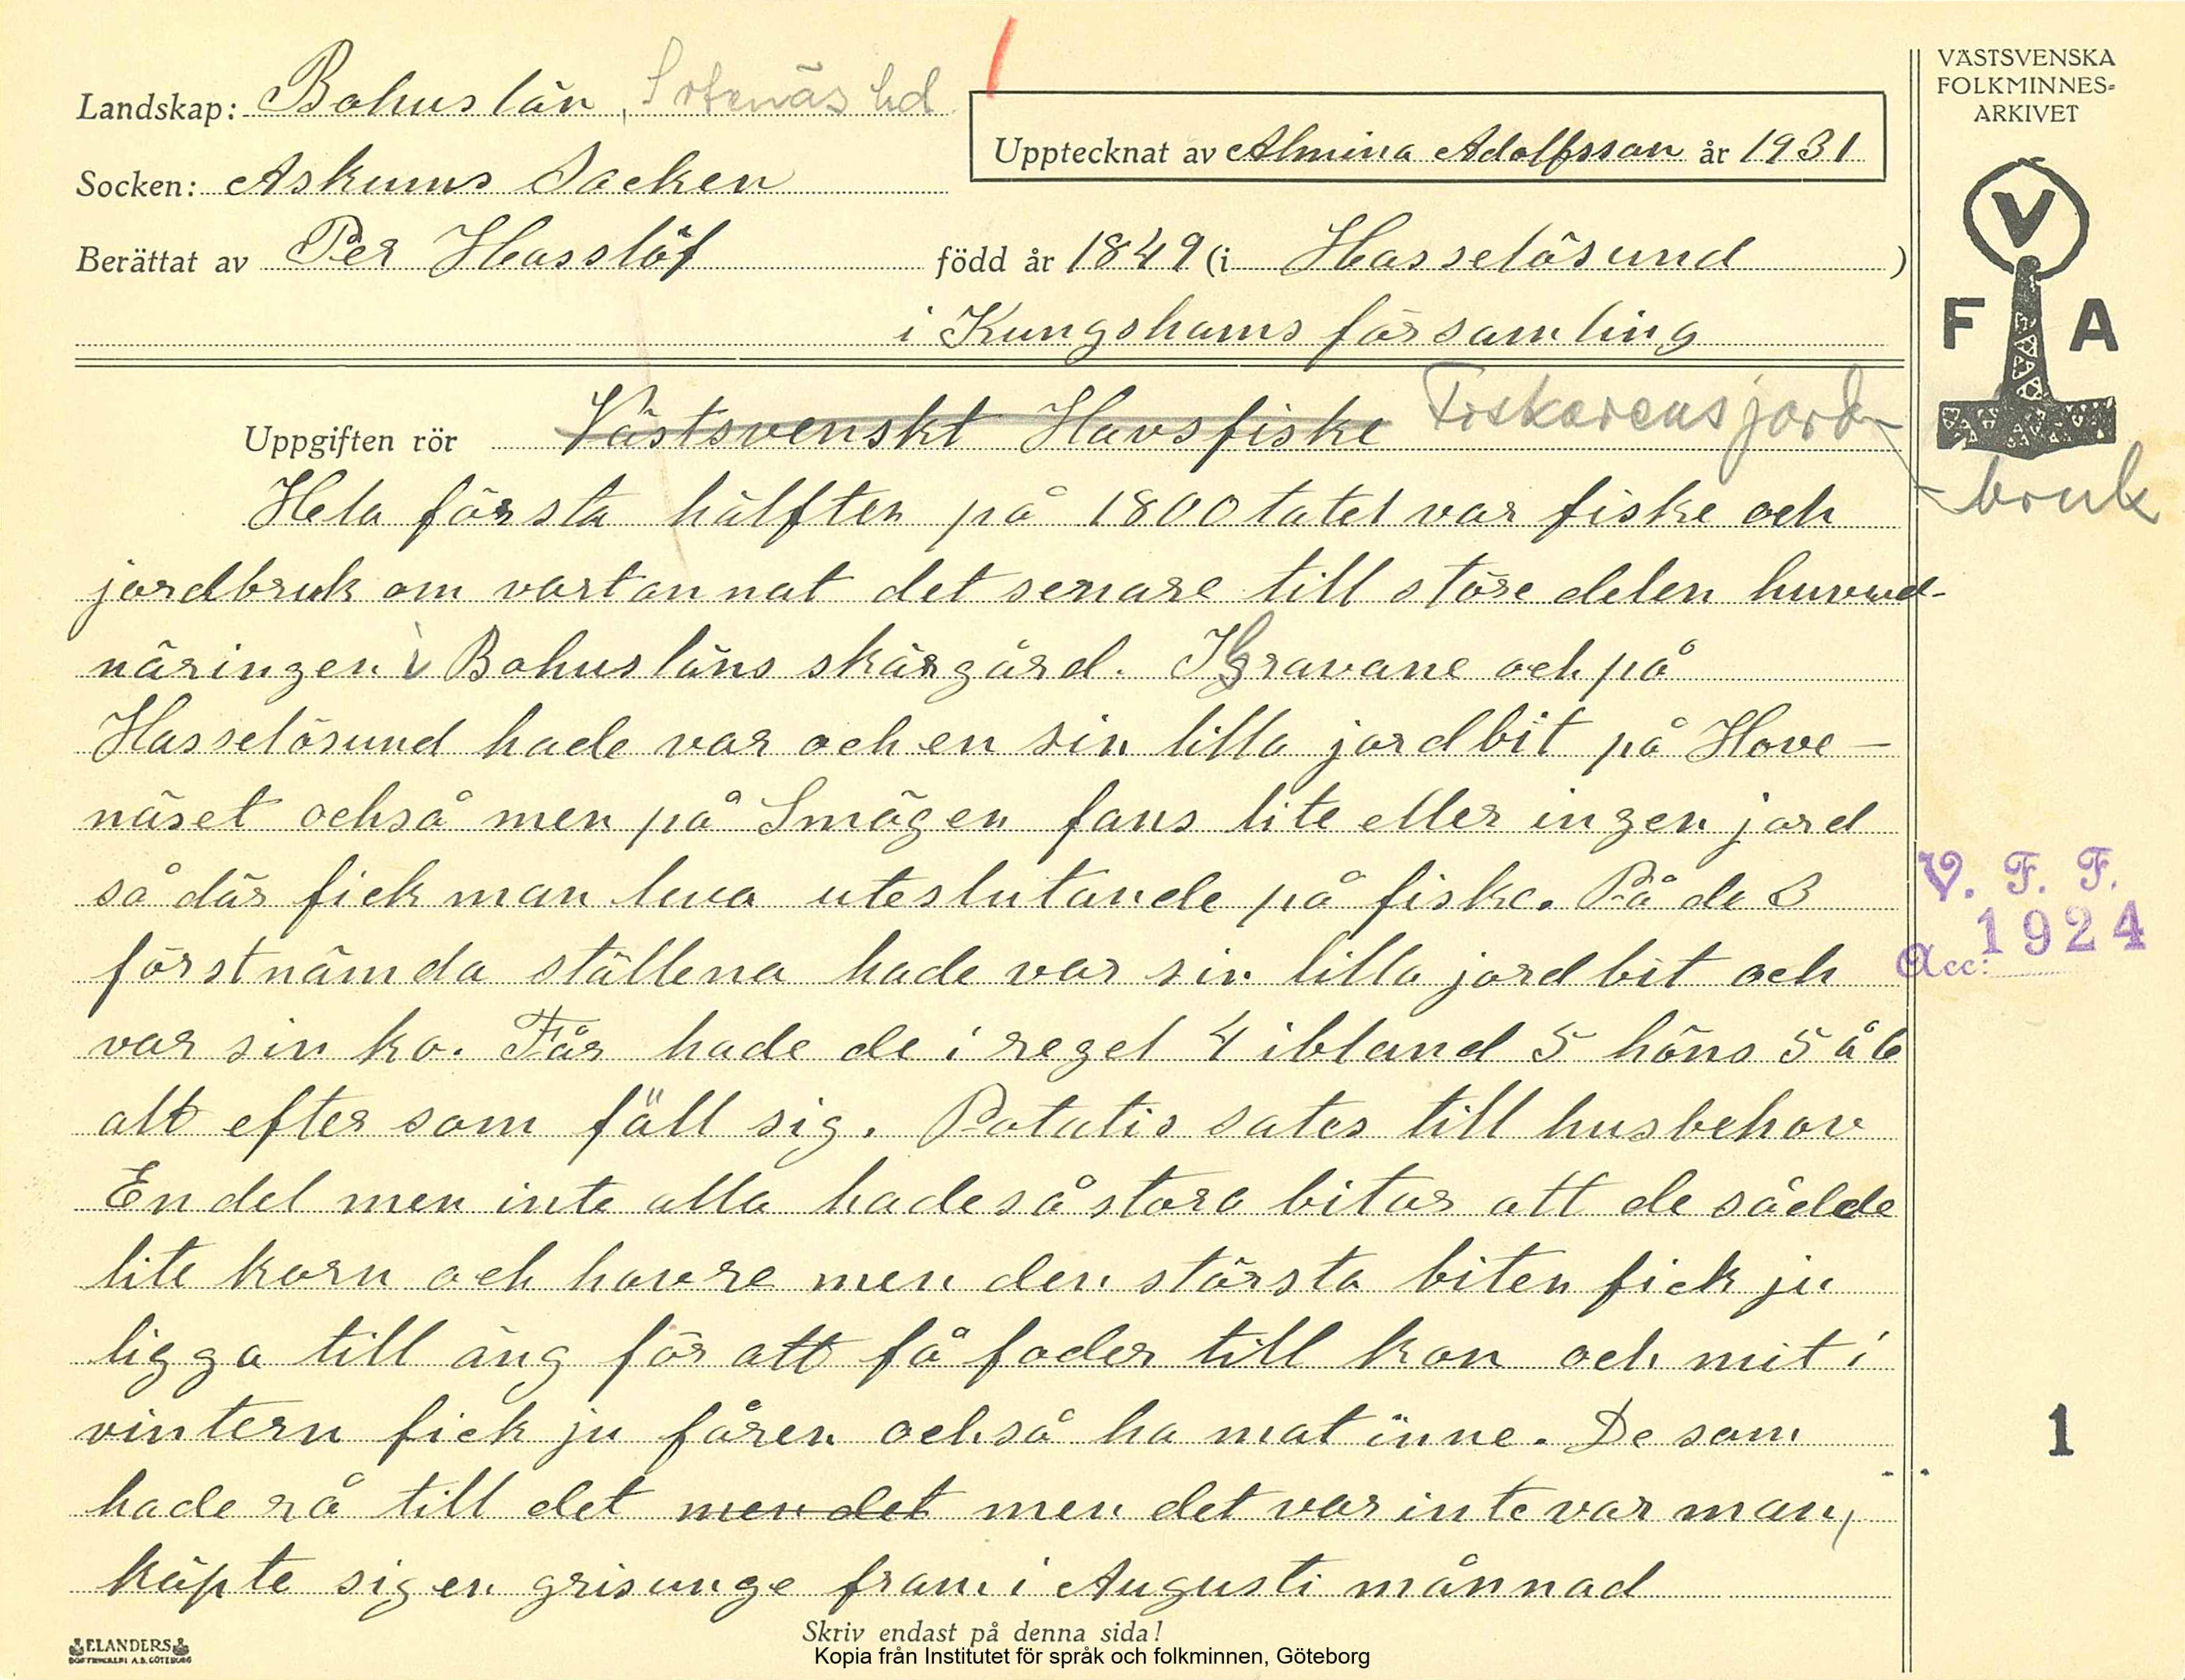 Landskap: Bohuslän, Sotenäs hd
Upptecknat av Almina Adolfsson år 1931
Socken: Askums Socken
Berättat av Per Hasslöf född år 1849 (i Hasselösund)
i Kungshams församling
VÄSTSVENSKA
FOLKMINNES-
ARKIVET
V
F A
Uppgiften rör Västsvenskt Havsfiske Fiskarens jord-
bruk
Hela första hälften på 1800 talet var fiske och
jordbruk om vartannat det senare till störe delen huvud-
näringen i Bohusläns skärgård. I Gravarne och på
Hasselösund hade var och en sin lilla jordbit på Hove-
näset ochså men på Smögen fans lite eller ingen jord
så där fick man leva uteslutande på fiske. På de 3
förstnämda ställena hade var sin lilla jordbit och
var sin ko. Får hade de i regel 4 ibland 5 höns 5 å 6
alt efter som föll sig. Potatis sates till husbehov
En del men inte alla hade så stora bitar att de sådde
lite korn och havre men den största biten fick ju
ligga till äng för att få foder till kon och mit i
vintern fick ju fåren ochså ha mat inne. De som
hade rå till det men det men det var inte var man,
köpte sig en grisunge fram i Augusti månnad
V. F. F.
Acc: 1924
1
Skriv endast på denna sida!
ELANDERS
BOKTRYCKERI A.B. GÖTEBORG
Kopia från Institutet för språk och folkminnen, Göteborg